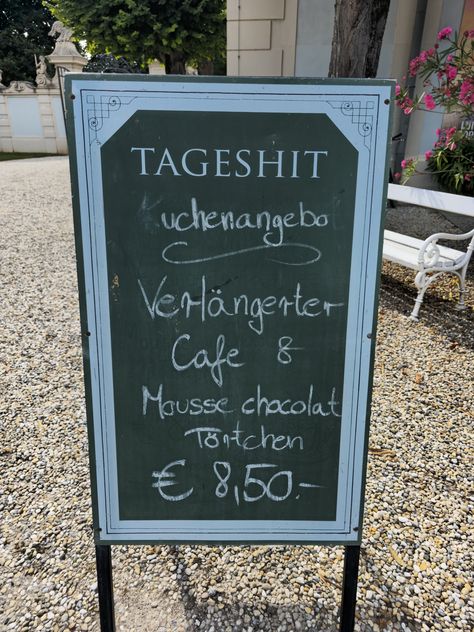 TAGESHIT
Kuchenangebot
Verlängerter
Cafe &
Mousse chocolat
Törtchen
€ 8,50.-